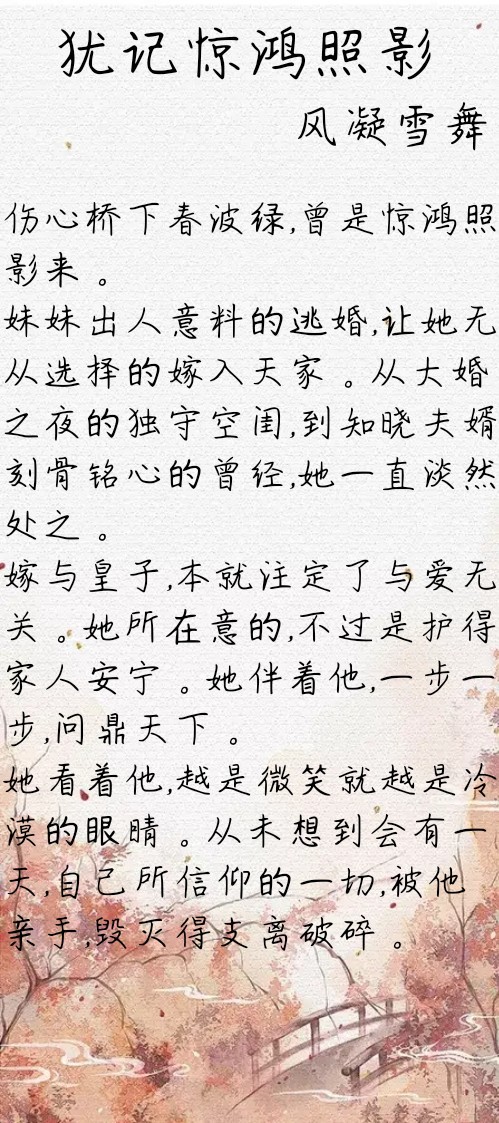 犹记惊鸿照影
风凝雪舞
伤心桥下春波绿,曾是惊鸿照
影来。
妹妹出人意料的逃婚,让她无
从选择的嫁入天家。从大婚
之夜的独守空闺,到知晓夫婿
刻骨铭心的曾经,她一直淡然
处之。
嫁与皇子,本就注定了与爱无
关。她所在意的,不过是护得
家人安宁。她伴着他,一步一
步,问鼎天下。
她看着他,越是微笑就越是冷
漠的眼睛。从未想到会有一
天,自己所信仰的一切,被他
亲手,毁灭得支离破碎。